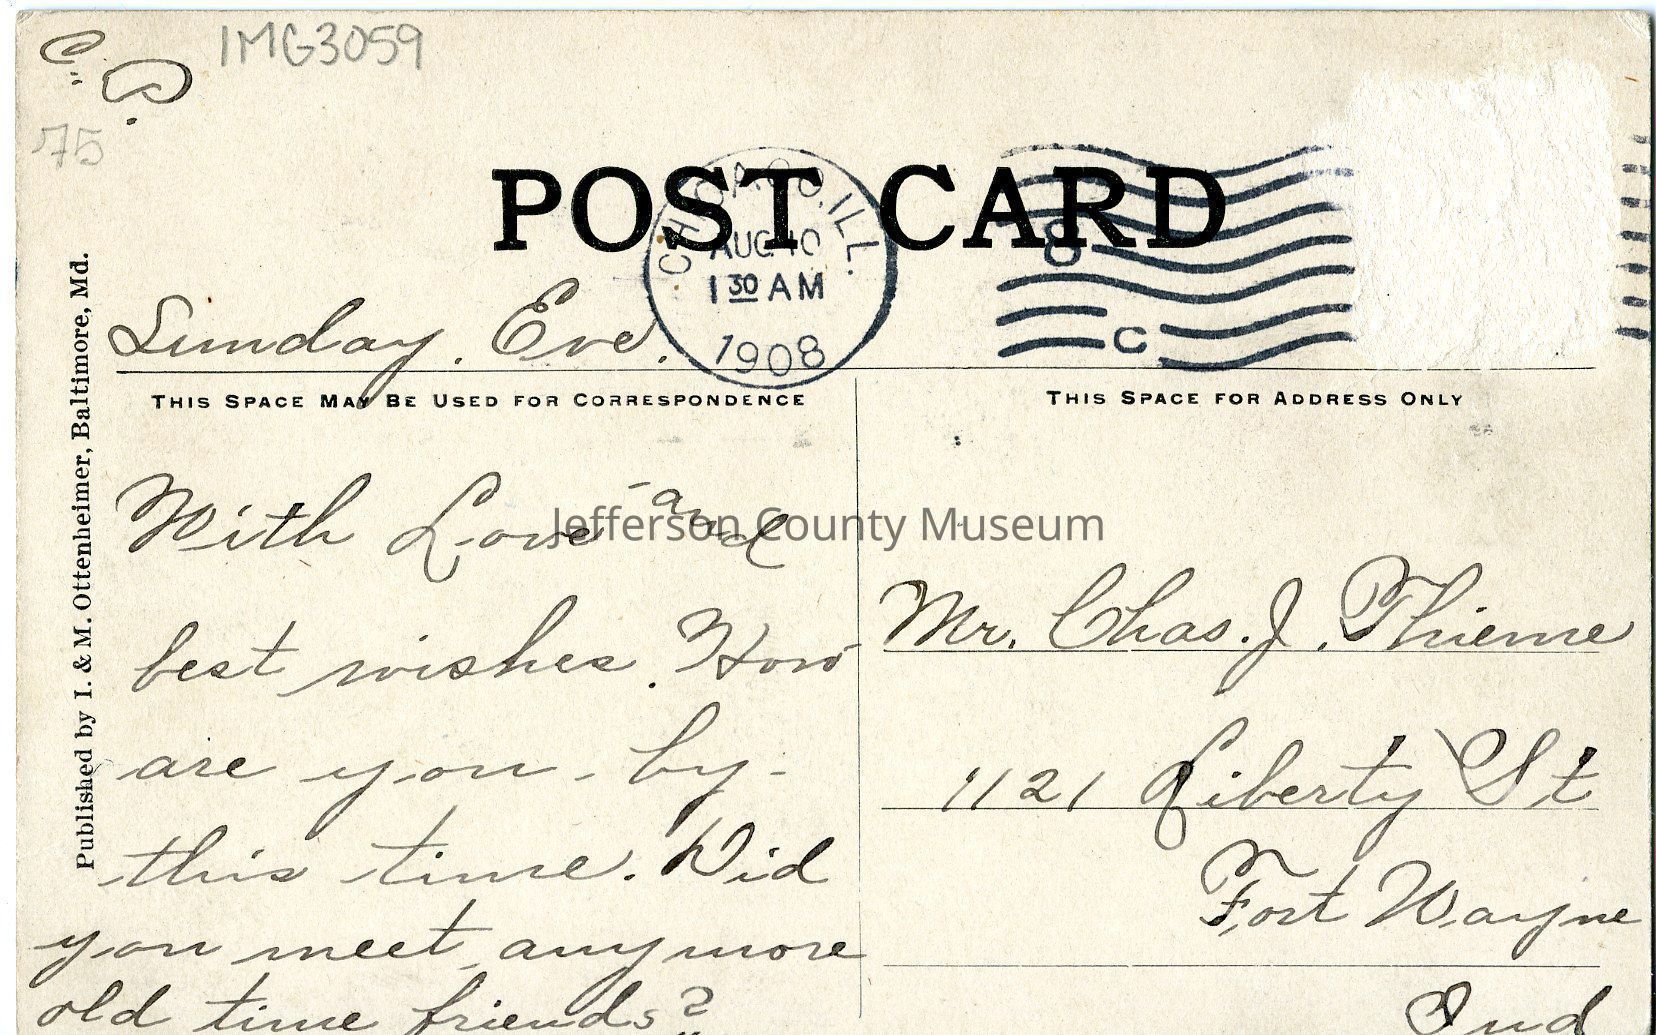 IMG3059
75
POST CARD
CHICAGO, ILL.
AUG 10
1 30 AM
1908
C
Published by I. & M. Ottenheimer, Baltimore, Md.
Sunday. Eve.
THIS SPACE MAY BE USED FOR CORRESPONDENCE
With Love and
best wishes. How
are you by
this time. Did
you meet anymore
old time friends?
THIS SPACE FOR ADDRESS ONLY
Mr. Chas. J. Thieme
1121 Liberty St
Fort Wayne
Ind
Jefferson County Museum